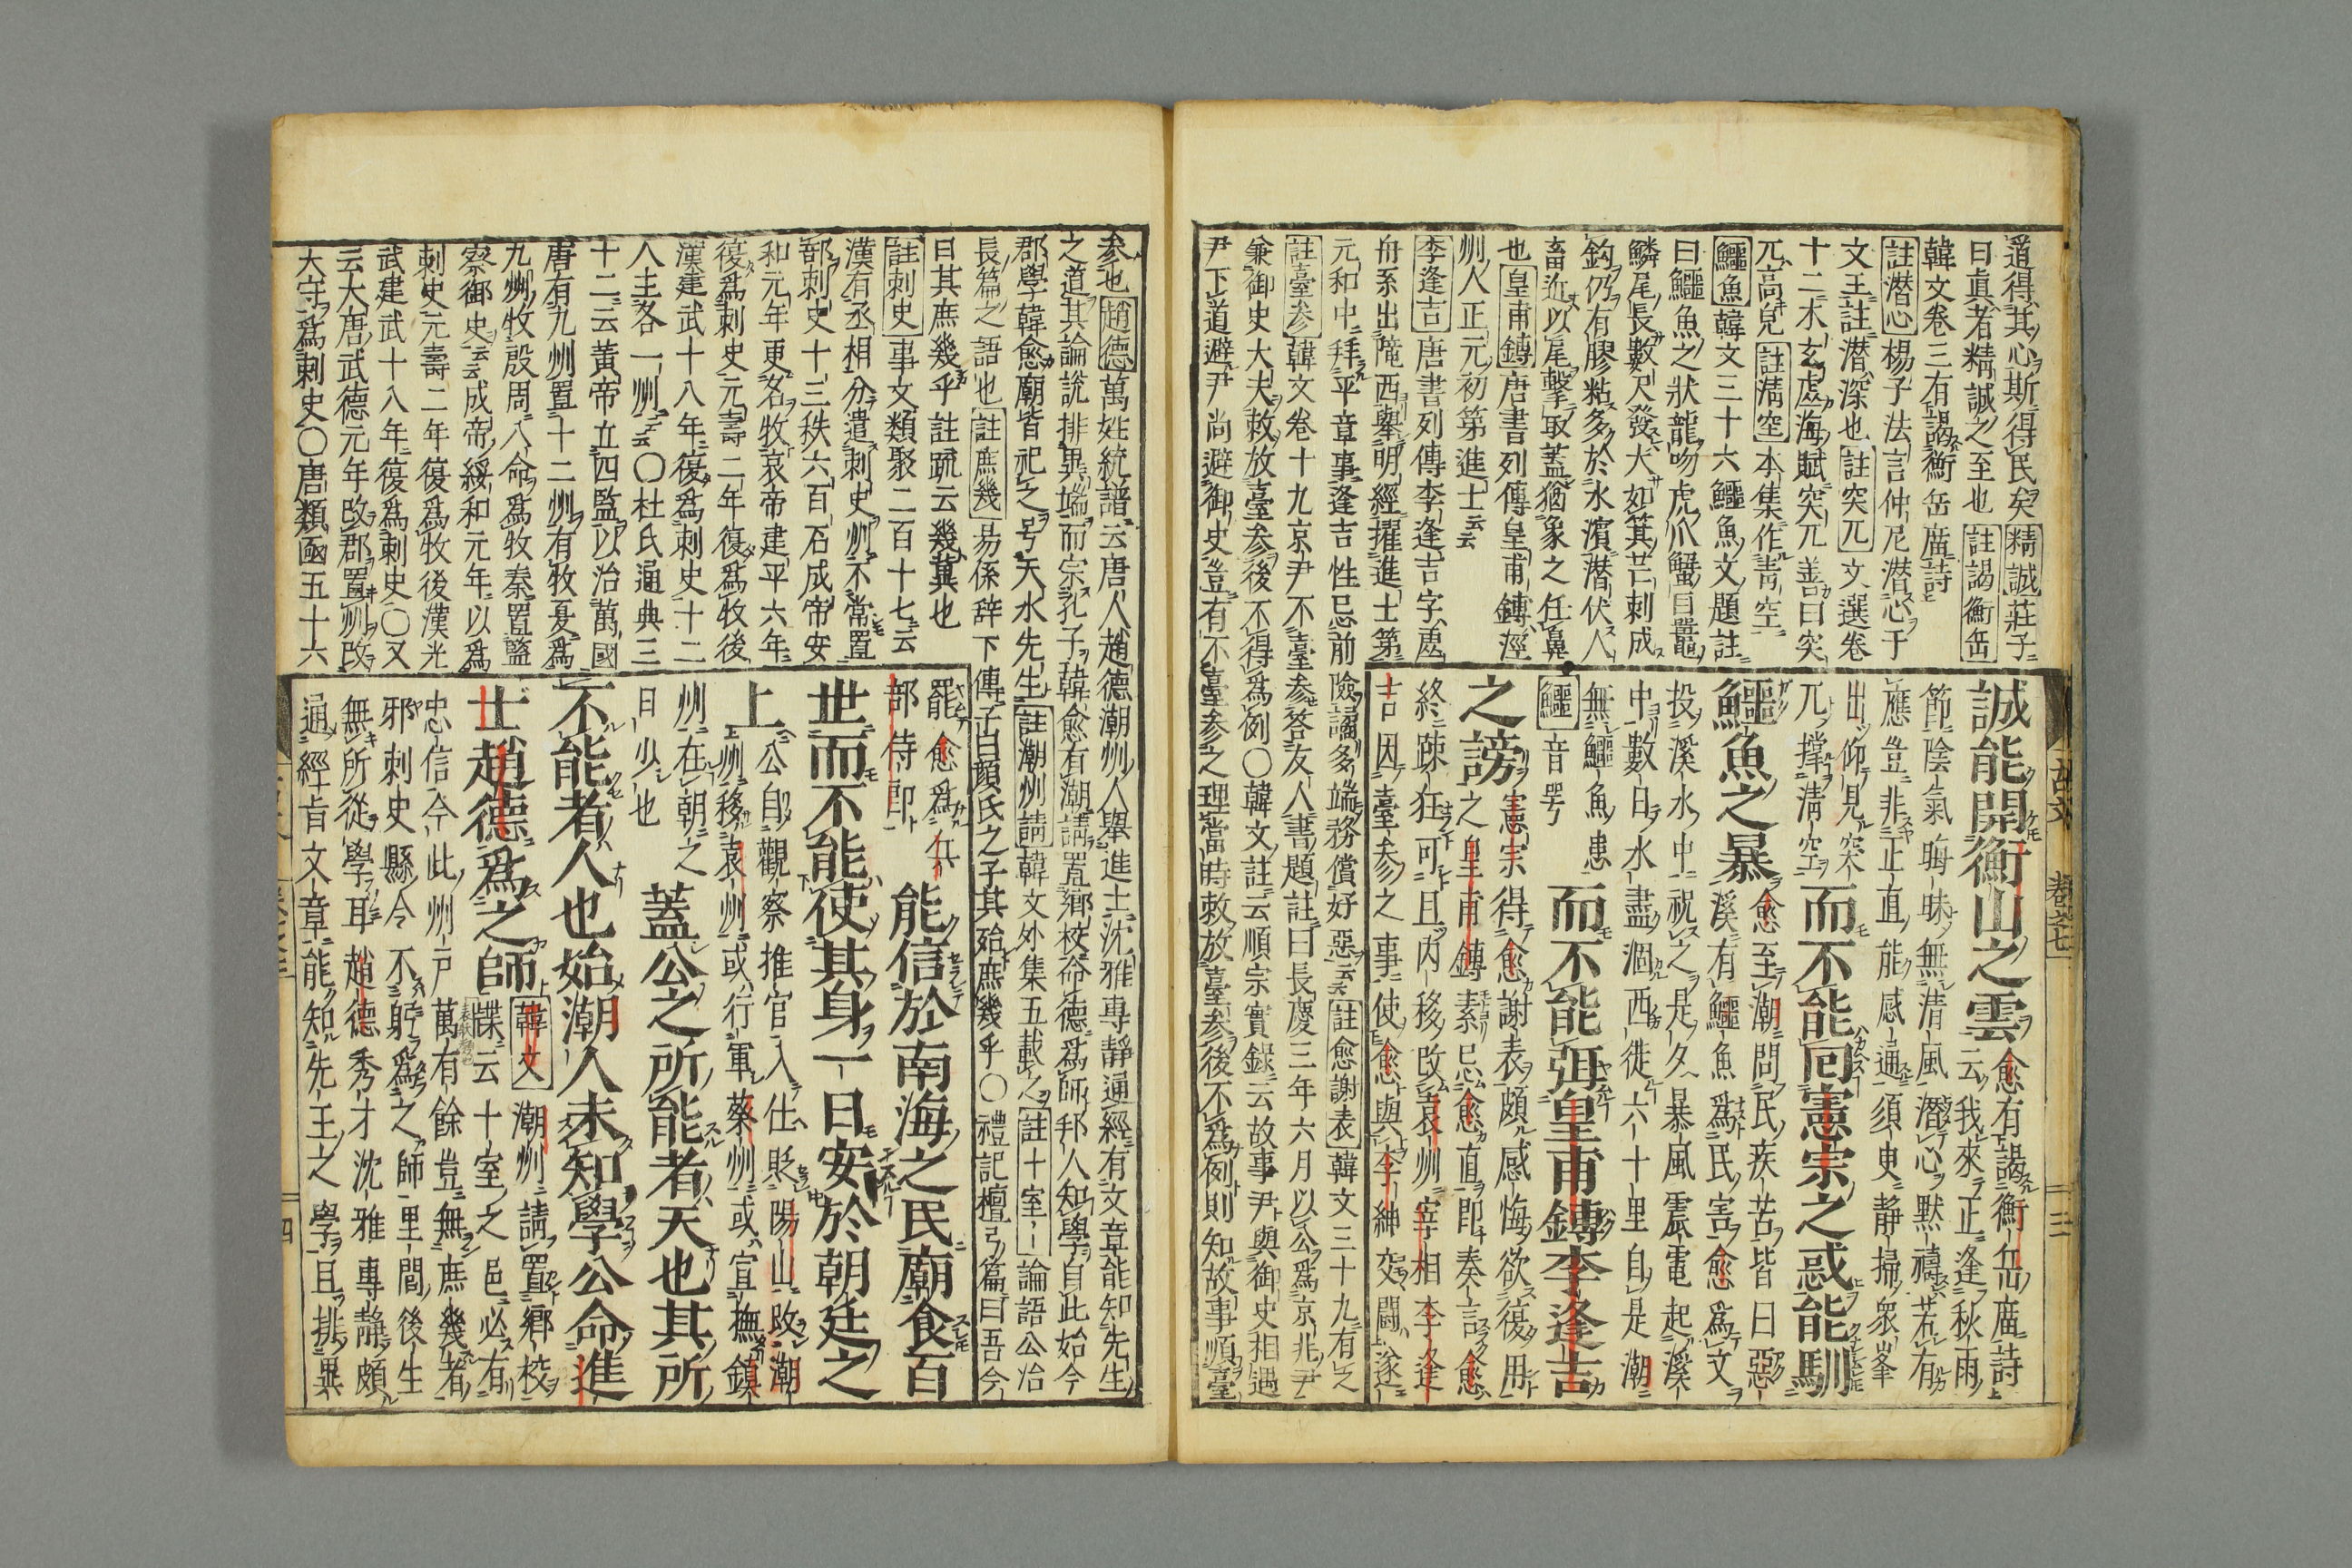 道得其心斯得民矣 精誠 莊子
曰真者精誠之至也 註謁衡岳
韓文卷三有謁衡岳廣詩
註潜心 楊子法言仲尼潜心于
文王註潜深也 註突兀 文選卷
十二木玄虛海賦突兀善曰突
兀高皃 註清空 本集作青空
鱷魚 韓文三十六鱷魚文題註
曰鱷魚之狀龍吻虎爪蟹目鼉
鱗尾長數尺發大如箕芒刺成
鈎仍有膠粘多於水濱潜伏人
畜近以尾擊取蓋猶象之任鼻
也 皇甫鏄 唐書列傳皇甫鏄涇
州人正元初第進士云云
李逢吉 唐書列傳李逢吉字虛
舟系出隴西舉明經擢進士第
元和中拜平章事逢吉性忌前險譎多端務償好惡云云 註愈謝表 韓文三十九有之
註臺参 韓文卷十九京尹不臺参答友人書題註曰長慶三年六月以公為京兆尹
兼御史大夫敕放臺参後不得為例〇韓文註云順宗實錄云故事尹與御史相遇
尹下道避尹尚避御史豈有不臺参之理當時敕放臺参後不為例則知故事須臺
誠能開衡山之雲 愈有謁衡岳廣詩
云我來正逢秋雨
節陰氣晦昧無清風潛心默禱若有
應豈非正直能感通須臾靜掃衆峯
出仰見突
兀撐清空 而不能囘憲宗之惑能馴
鱷魚之暴 愈至潮問民疾苦皆曰惡
溪有鱷魚為民害愈為文
投溪水中祝之是夕暴風震電起溪
中數日水盡涸西徙六十里自是潮
無鱷魚患
鱷 音咢 而不能弭皇甫鏄李逢吉
之謗 憲宗得愈謝表頗感悔欲復用
之皇甫鏄素忌愈直即奏言愈
終疎狂可且內移改袁州宰相李逢
吉因臺参之事使愈與李紳交鬭遂
卷之七
三
参也 趙德 萬姓統譜云唐人趙德潮州人舉進士沈雅專靜通經有文章能知先生
之道其論說排異端而宗孔子韓愈有潮請置鄉校命德為師邦人知學自此始今
郡學韓愈廟皆祀之号天水先生 註潮州請 韓文外集五載之 註十室 論語公冶
長篇之語也 註庶幾 易係辞下傳子曰顔氏之子其殆庶幾乎〇禮記檀弓篇曰吾今
日其庶幾乎註疏云幾冀也
註刺史 事文類聚二百十七云
漢有丞相分遣刺史州不常置
部刺史十三秩六百石成帝安
和元年更名牧哀帝建平六年
復為刺史元壽二年復為牧後
漢建武十八年復為刺史十二
人主各一州云云〇杜氏通典三
十二云黄帝立四監以治萬國
唐有九州置十二州有牧夏為
九州牧殷周八命為牧秦置監
察御史云云成帝綏和元年以為
刺史元壽二年復為牧後漢光
武建武十八年復為刺史〇又
云大唐武德元年改郡置州改
大守為刺史〇唐類函五十六
罷愈為兵
部侍郎 能信於南海之民廟食百
世而不能使其身一日安於朝廷之
上 公自觀察推官入仕貶陽山改潮
州移袁州或行軍蔡州或宣撫鎮
州在朝之
日少也 蓋公之所能者天也其所
不能者人也始潮人未知學公命進
士趙德為之師 韓文 潮州請置鄉校
牒云十室之邑必有
忠信今此州戸萬有餘豈無庶幾者
邪刺史縣令不躬為之師里閭後生
無所從學耳趙德秀才沈雅專靜頗
通經肯文章能知先王之學且排異
四